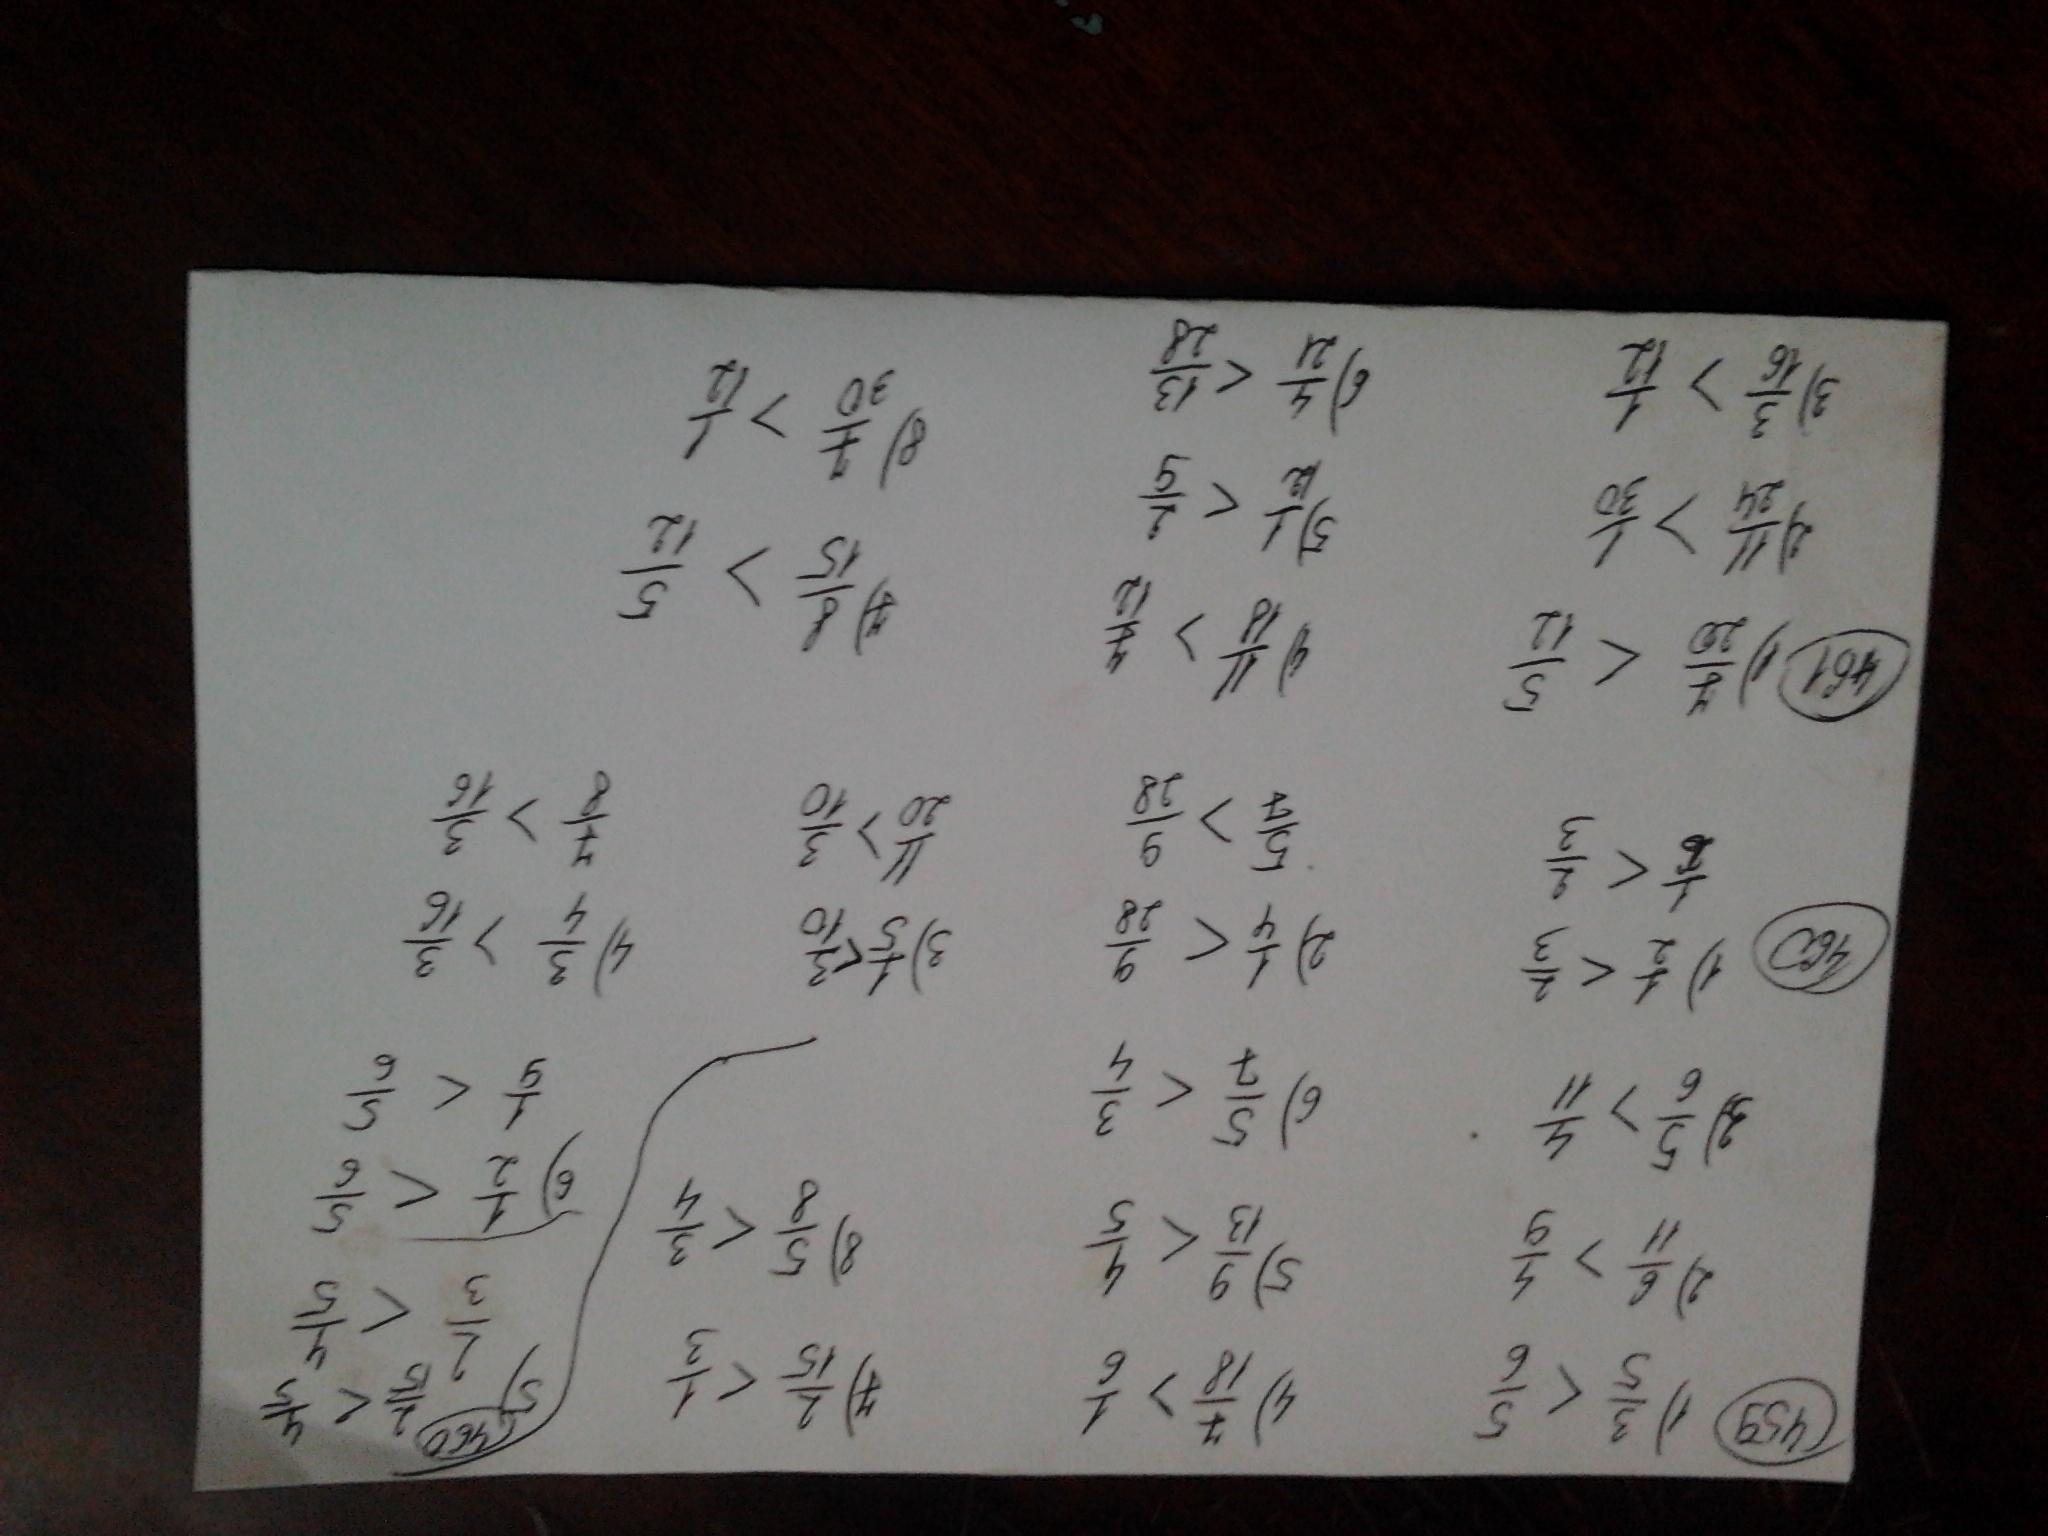 459
1) 3/5 < 5/6
2) 6/11 > 4/9
3) 5/6 > 4/11
4) 7/18 > 1/6
5) 9/13 < 4/5
6) 5/7 < 3/4
7) 2/15 < 1/3
8) 5/8 < 3/4
460
1) 1/2 < 2/3
2/3
2) 1/4 < 9/28
5/7 > 9/28
3) 1/5 < 3/10
11/20 > 3/10
4) 3/4 > 3/16
7/8 > 3/16
460
5) 2/15 < 4/5
2/3 < 4/5
6) 1/2 < 5/6
1/9 < 5/6
461
1) 7/20 < 5/12
2) 11/24 > 1/30
3) 3/16 > 1/12
4) 11/18 > 7/12
5) 1/12 < 2/9
6) 4/21 < 13/28
7) 8/15 > 5/12
8) 7/30 > 1/12